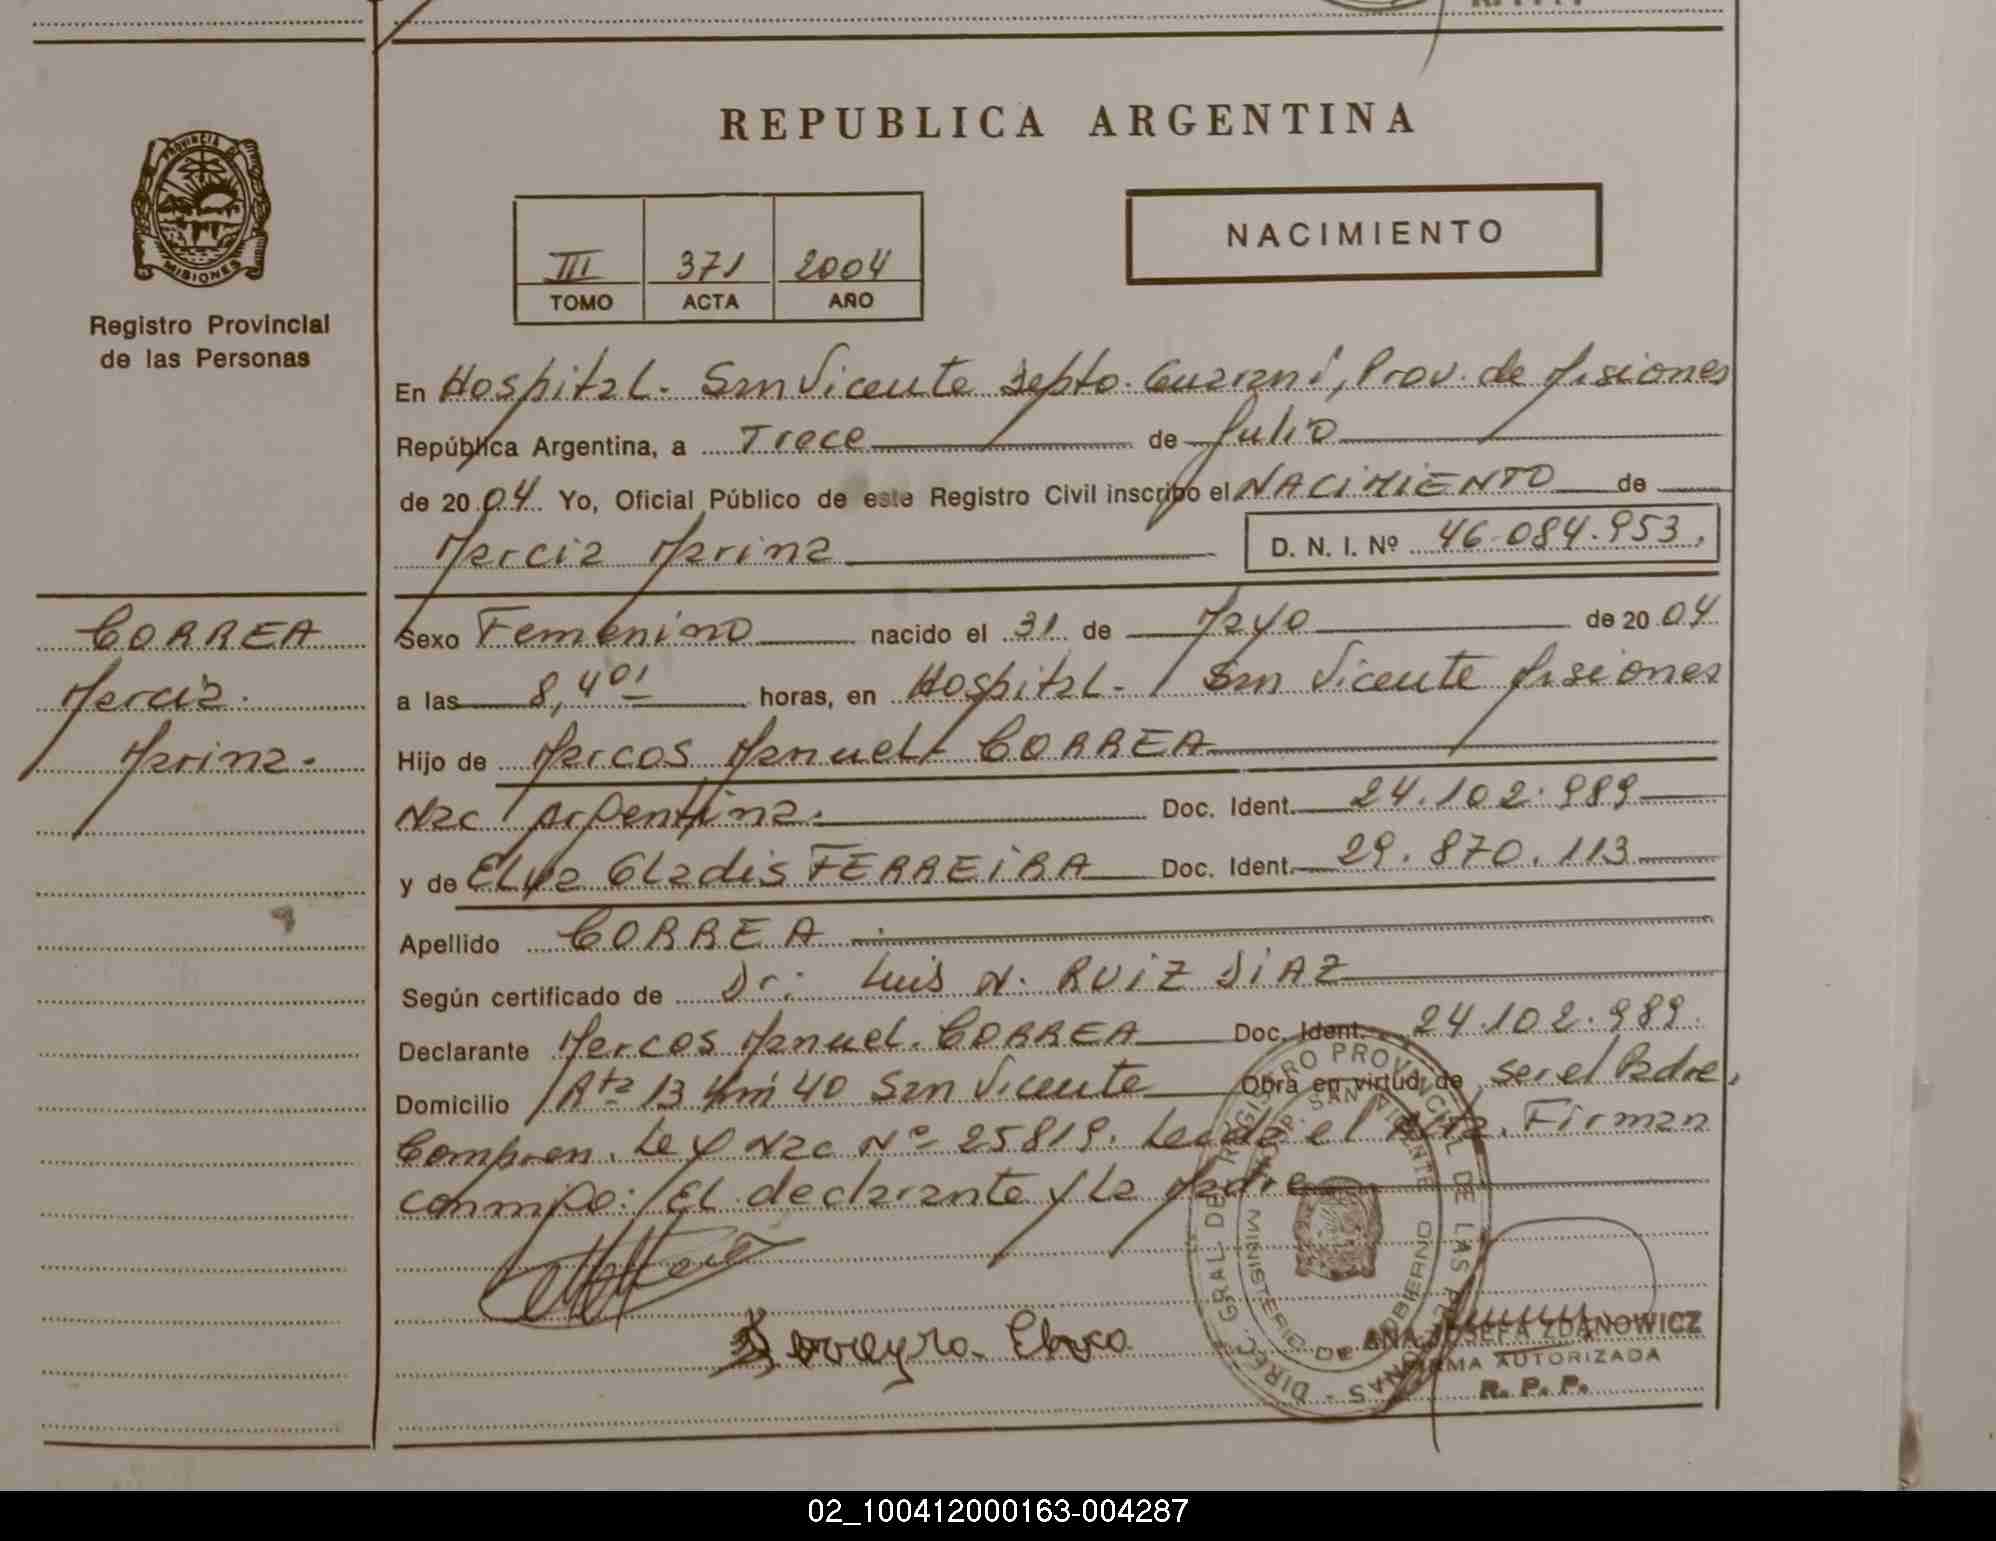 REPUBLICA ARGENTINA
PROVINCIA DE
MISIONES
Registro Provincial
de las Personas
III 371 2004
TOMO ACTA AÑO
NACIMIENTO
En Hospital. San Vicente Depto. Guaraní, Prov. de Misiones
República Argentina, a Trece de Julio
de 2004. Yo, Oficial Público de este Registro Civil inscribo el NACIMIENTO de
Marcia Marina D. N. I. Nº 46.084.953.
CORREA
Marcia.
Marina.
Sexo Femenino nacido el 31 de Mayo de 2004
a las 8,40 horas, en Hospital. San Vicente Misiones
Hijo de Marcos Manuel CORREA
Nac Argentina. Doc. Ident. 24.102.989
y de Gladis FERREIRA Doc. Ident. 29.870.113
Apellido CORREA
Según certificado de Dr: Luis N. RUIZ DIAZ
Declarante Marcos Manuel. CORREA Doc. Ident. 24.102.989.
Domicilio Rta 13 km 40 San Vicente Obra en virtud de ser el Padre,
Compren. Ley Nac Nº 25819. Leida el Acta. Firman
conmigo: El declarante y la Madre
DIREC. GRAL. DE REGISTRO PROVINCIAL DE LAS PERSONAS
HOSP. SAN VICENTE
MINISTERIO DE GOBIERNO
ANA JOSEFA ZDANOWICZ
FIRMA AUTORIZADA
R. P. P.
02_100412000163-004287